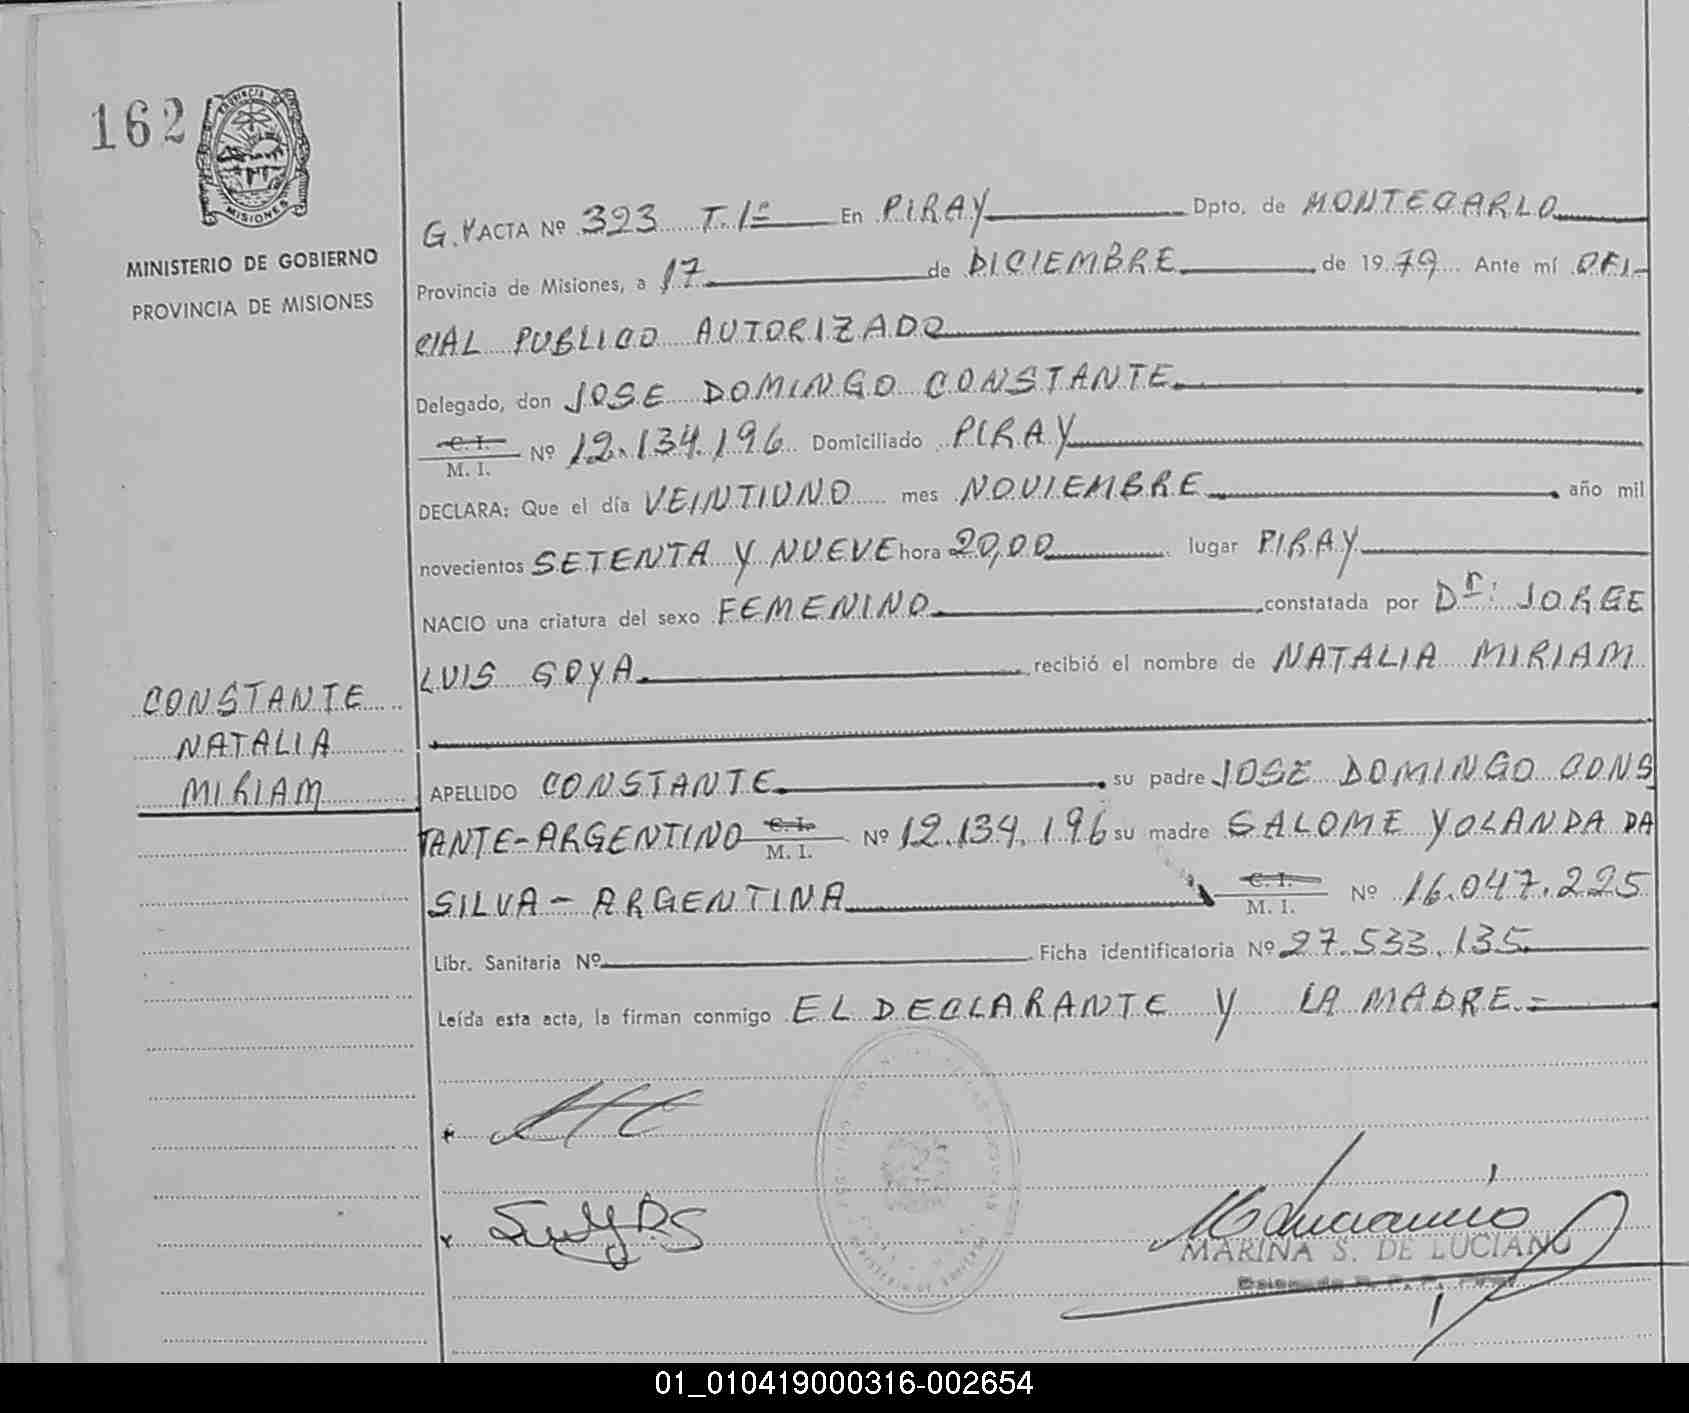 162
PROVINCIA DE
MISIONES
MINISTERIO DE GOBIERNO
PROVINCIA DE MISIONES
G.Y ACTA Nº 393 T.1º En PIRAY Dpto. de MONTECARLO
Provincia de Misiones, a 17 de DICIEMBRE de 1979 Ante mí OFI-
CIAL PUBLICO AUTORIZADO
Delegado, don JOSE DOMINGO CONSTANTE
C. I.
M. I. Nº 12.134.196 Domiciliado PIRAY
DECLARA: Que el día VEINTIUNO mes NOVIEMBRE año mil
novecientos SETENTA Y NUEVE hora 20,00 lugar PIRAY
NACIO una criatura del sexo FEMENINO constatada por Dr: JORGE
LUIS GOYA recibió el nombre de NATALIA MIRIAM
CONSTANTE
NATALIA
MIRIAM
APELLIDO CONSTANTE su padre JOSE DOMINGO CONS
TANTE-ARGENTINO C. I. M. I. Nº 12.134.196 su madre SALOME YOLANDA DA
SILVA - ARGENTINA C. I. M. I. Nº 16.047.225
Libr. Sanitaria Nº Ficha identificatoria Nº 27.533.135
Leída esta acta, la firman conmigo EL DECLARANTE Y LA MADRE.=
MARINA S. DE LUCIANO
01_010419000316-002654